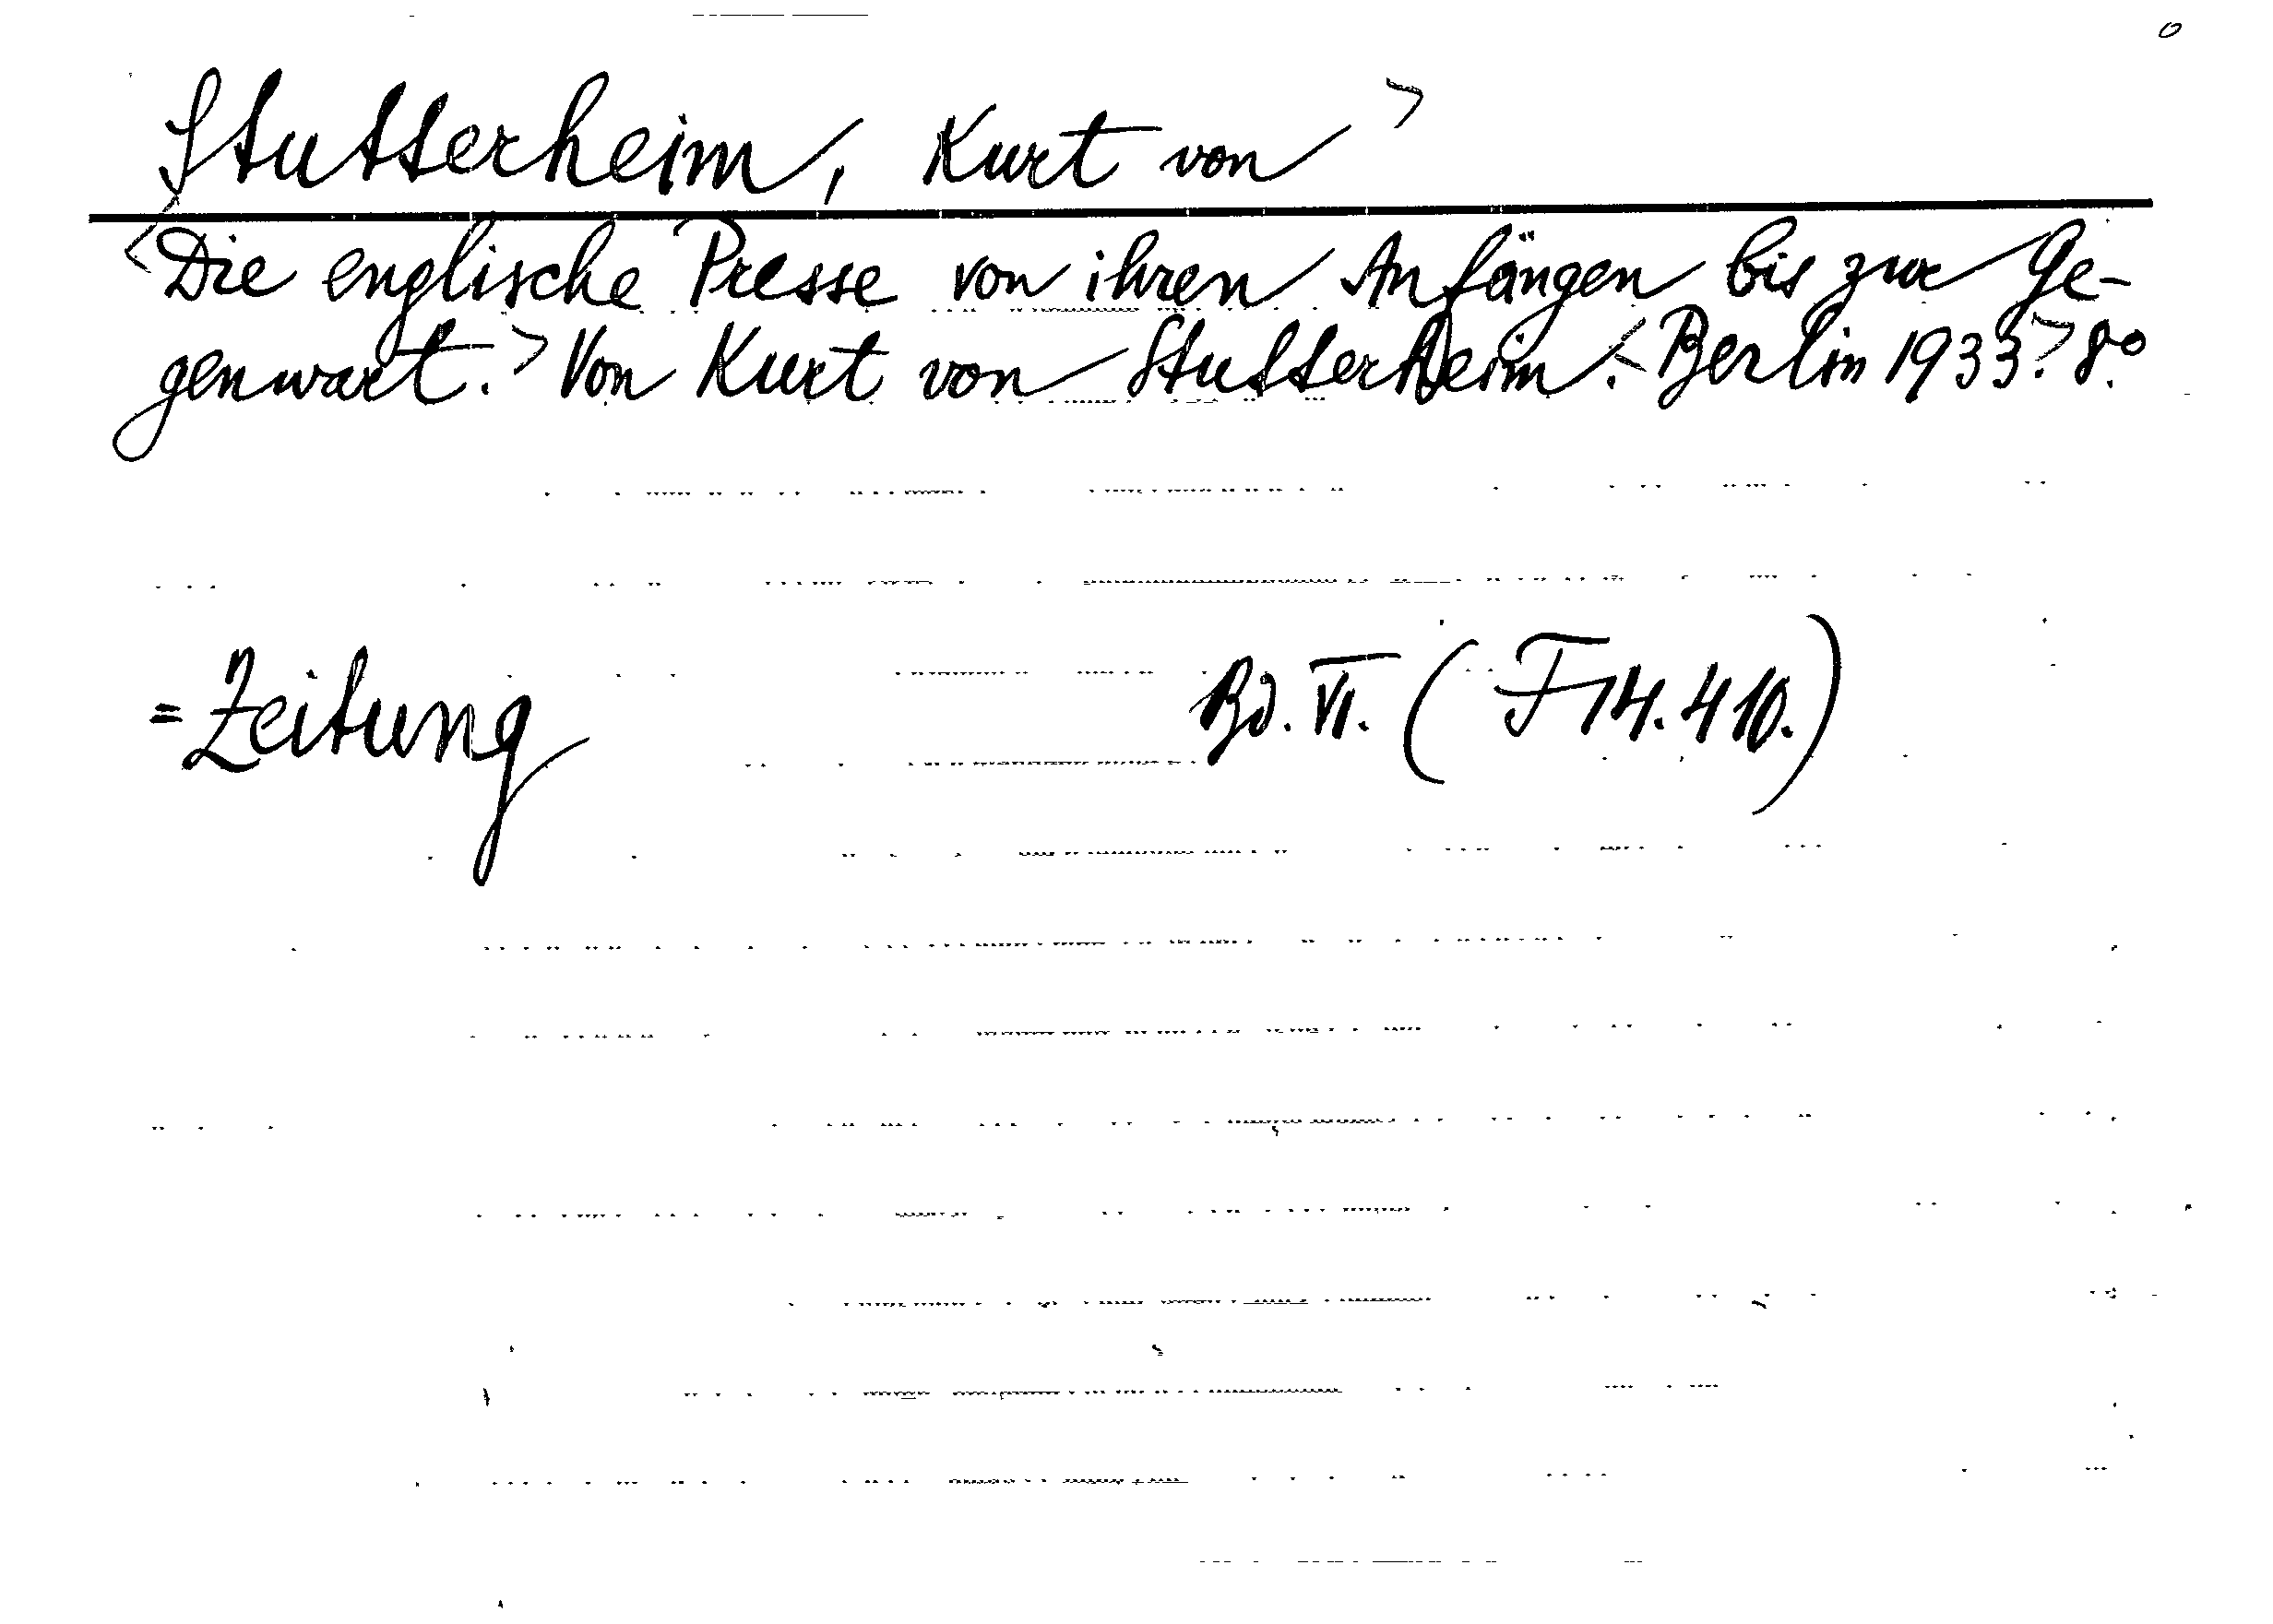 Stutterheim, Kurt von>
<Die englische Presse von ihren Anfängen bis zur Ge-
genwart.> Von Kurt von Stutterheim. <Berlin 1933.> 8.°
=Zeitung Bd. VI. (F 14.410.)